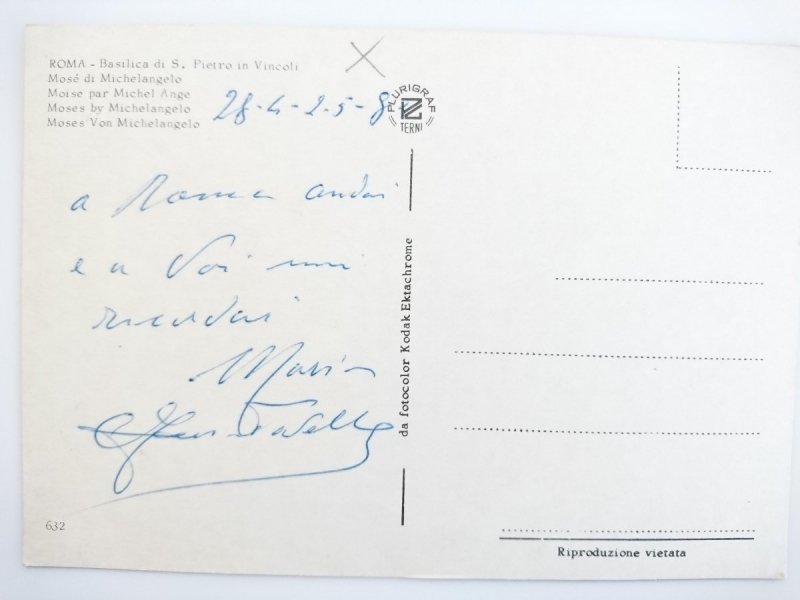 ROMA - Basilica di S. Pietro in Vincoli
Mosé di Michelangelo
Moise par Michel Ange
Moses by Michelangelo
Moses Von Michelangelo
28-4-2-5-8
PLURIGRAF
TERNI
a Roma andai
e a Voi mi
ricordai
Maria
da fotocolor Kodak Ektachrome
632
Riproduzione vietata